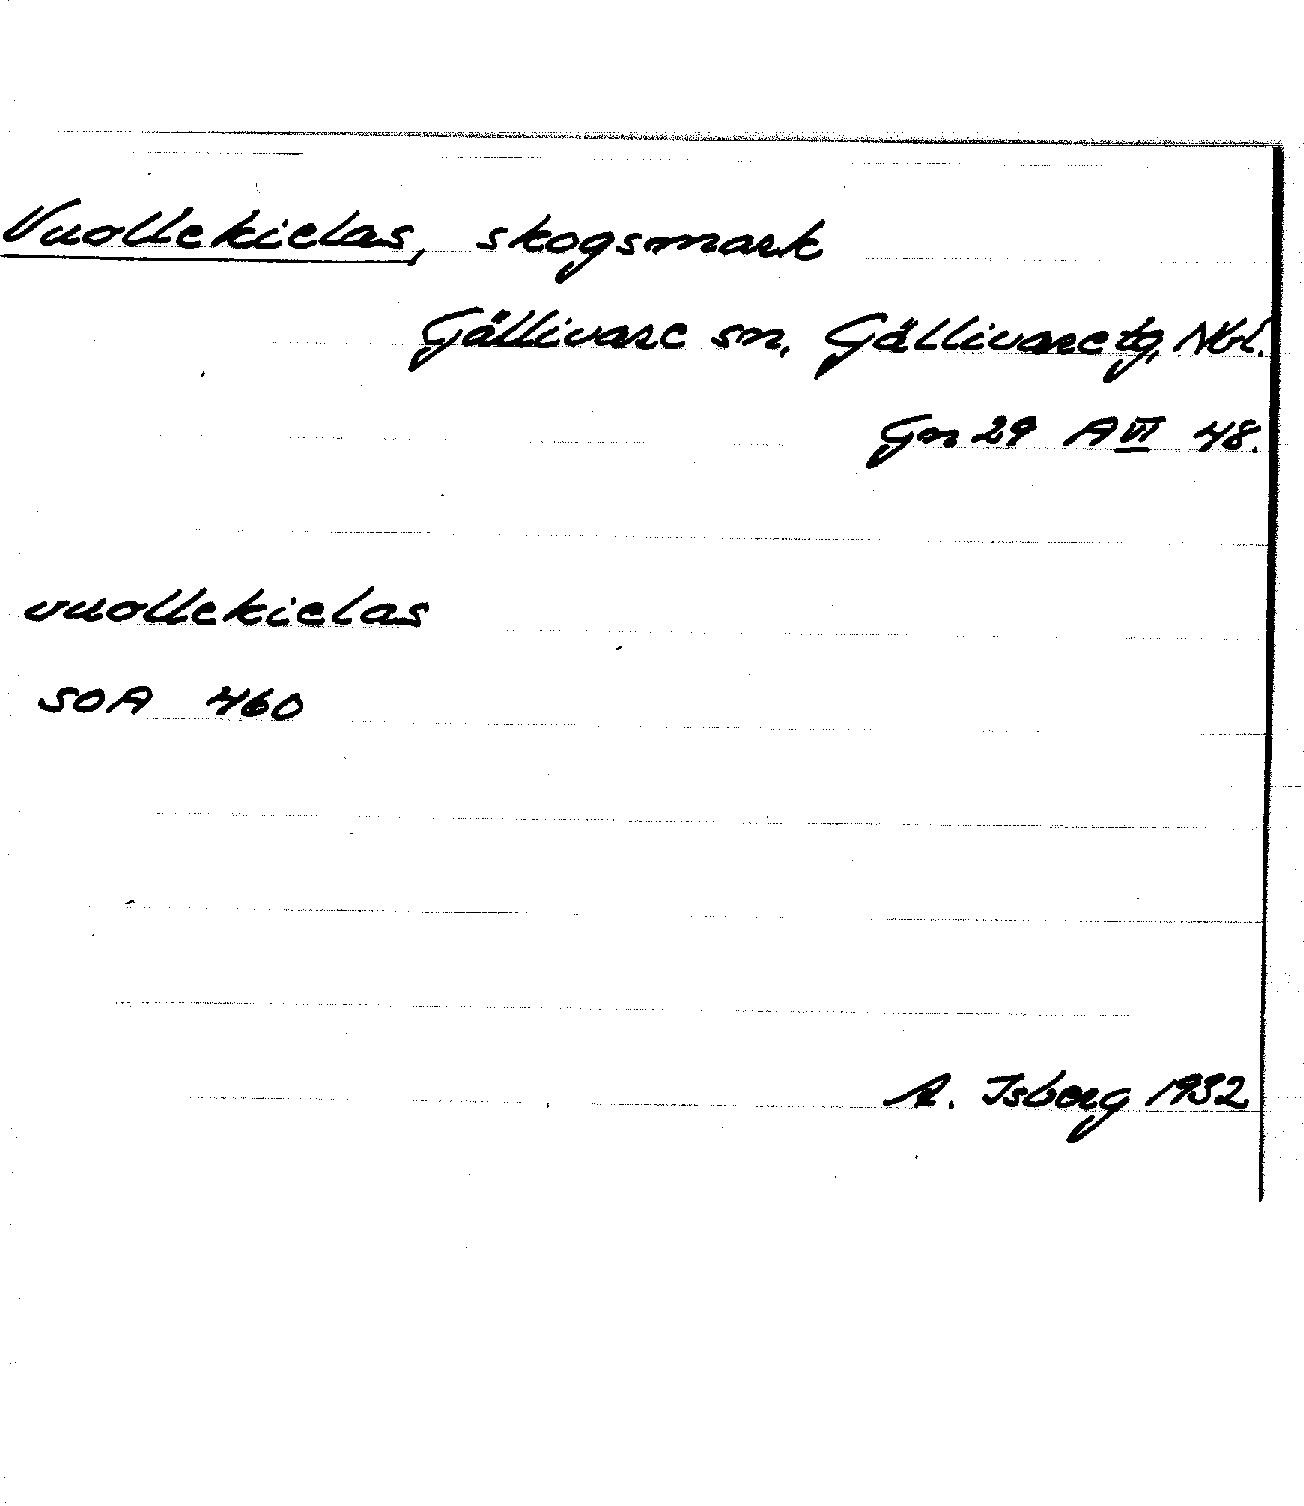 Vuollekielas, skogsmark
Gällivare sn, Gällivare tg, Nbl.
Gm 29 A VI 48.
vuollekielas
SOA 460
A. Isberg 1932